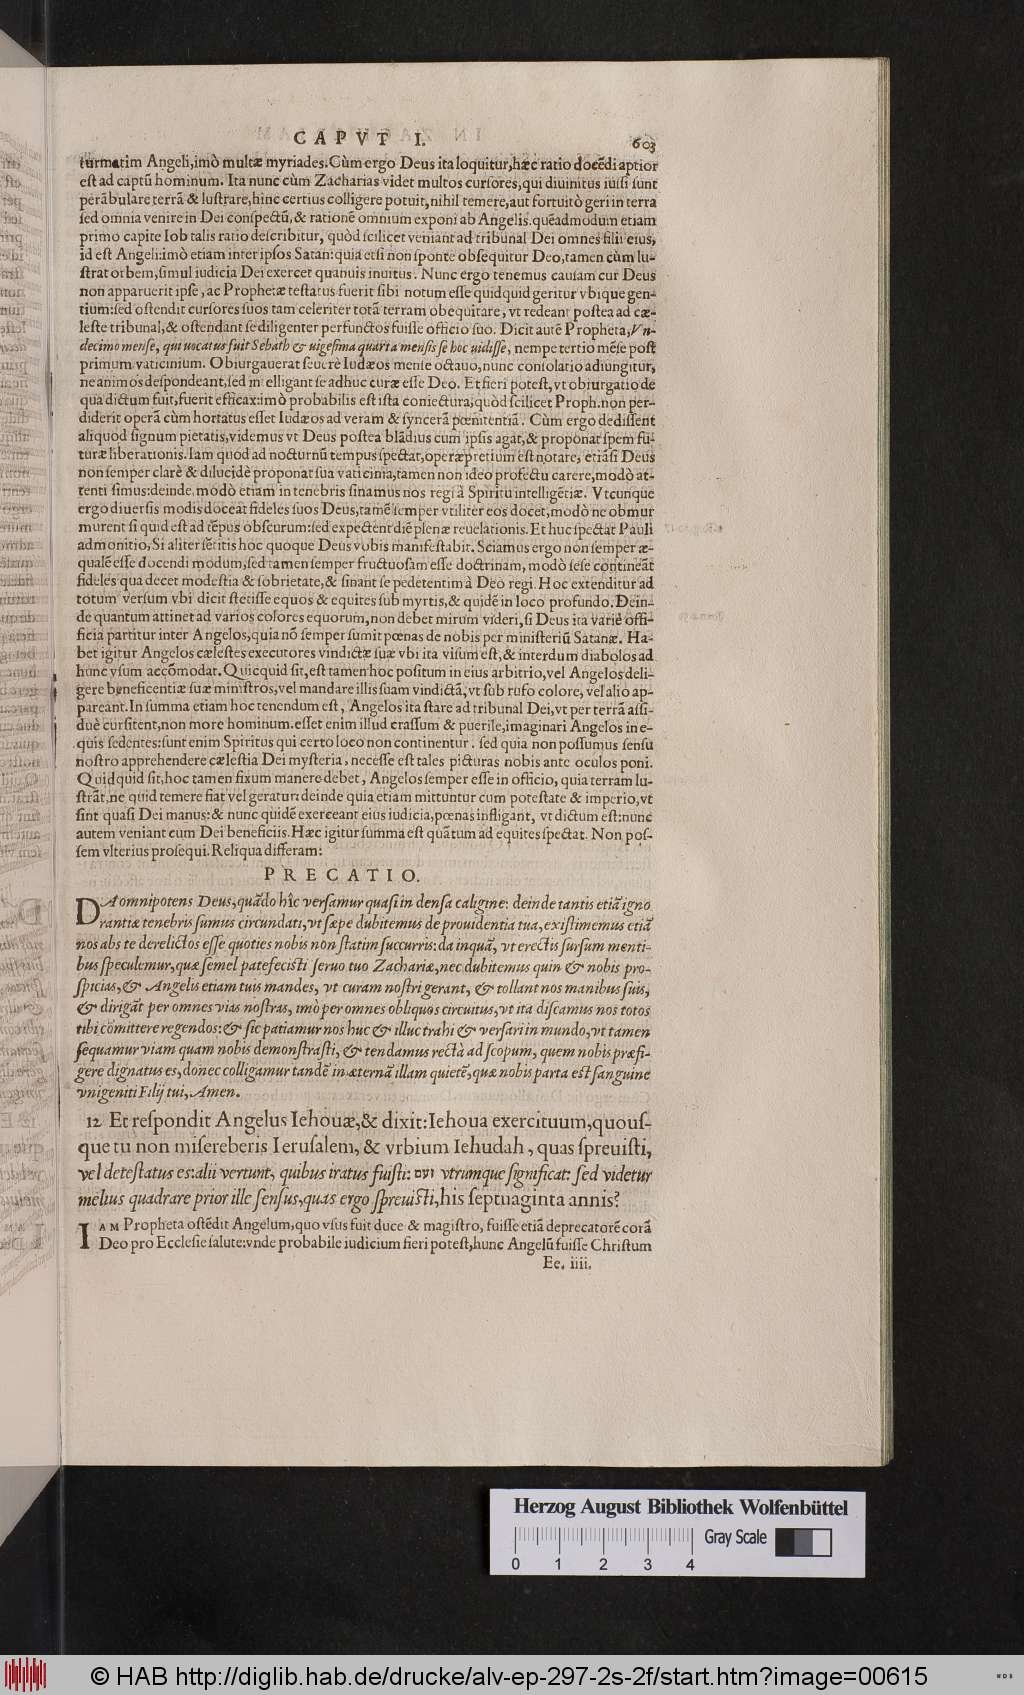 CAPVT I. 603
turmatim Angeli, imò multæ myriades. Cùm ergo Deus ita loquitur, hæc ratio docẽdi aptior
est ad captũ hominum. Ita nunc cùm Zacharias videt multos cursores, qui diuinitus iussi sunt
perãbulare terrã & lustrare, hinc certius colligere potuit, nihil temere, aut fortuitò geri in terra
sed omnia venire in Dei conspectũ, & rationẽ omnium exponi ab Angelis. quẽadmodum etiam
primo capite Iob talis ratio describitur, quòd scilicet veniant ad tribunal Dei omnes filii eius,
id est Angeli: imò etiam inter ipsos Satan: quia etsi non sponte obsequitur Deo, tamen cùm lu-
strat orbem, simul iudicia Dei exercet quanuis inuitus. Nunc ergo tenemus causam cur Deus
non apparuerit ipse, ac Prophetæ testatus fuerit sibi notum esse quidquid geritur vbique gen-
tium: sed ostendit cursores suos tam celeriter totã terram obequitare, vt redeant postea ad cæ-
leste tribunal, & ostendant se diligenter perfunctos fuisse officio suo. Dicit autẽ Propheta, Vn-
decimo mense, qui uocatus fuit Sebath & uigesima quarta mensis se hoc uidisse, nempe tertio mẽse post
primum vaticinium. Obiurgauerat seuerè Iudæos mense octauo, nunc consolatio adiungitur,
ne animos despondeant, sed intelligant se adhuc curæ esse Deo. Et fieri potest, vt obiurgatio de
qua dictum fuit, fuerit efficax: imò probabilis est ista coniectura, quòd scilicet Proph. non per-
diderit operã cùm hortatus esset Iudæos ad veram & syncerã pœnitentiã. Cùm ergo dedissent
aliquod signum pietatis, videmus vt Deus postea blãdius cum ipsis agat, & proponat spem fu-
turæ liberationis. Iam quod ad nocturnũ tempus spectat, operæpretium est notare, etiãsi Deus
non semper clarè & dilucidè proponat sua vaticinia, tamen non ideo profectu carere, modò at-
tenti simus: deinde, modò etiam in tenebris sinamus nos regi à Spiritu intelligẽtiæ. Vtcunque
ergo diuersis modis doceat fideles suos Deus, tamẽ semper vtiliter eos docet, modò ne obmur
murent si quid est ad tẽpus obscurum: sed expectent diẽ plenæ reuelationis. Et huc spectat Pauli
admonitio, Si aliter sẽtitis hoc quoque Deus vobis manifestabit. Sciamus ergo non semper æ-
qualẽ esse docendi modum, sed tamen semper fructuosam esse doctrinam, modò sese contineãt
fideles qua decet modestia & sobrietate, & sinant se pedetentim à Deo regi. Hoc extenditur ad
totum versum vbi dicit stetisse equos & equites sub myrtis, & quidẽ in loco profundo. Dein-
de quantum attinet ad varios colores equorum, non debet mirum videri, si Deus ita variè offi-
ficia partitur inter Angelos, quia nõ semper sumit pœnas de nobis per ministeriũ Satanæ. Ha-
bet igitur Angelos cælestes executores vindictæ suæ vbi ita visum est, & interdum diabolos ad
hunc vsum accõmodat. Quicquid sit, est tamen hoc positum in eius arbitrio, vel Angelos deli-
gere beneficentiæ suæ ministros, vel mandare illis suam vindictã, vt sub rufo colore, vel alio ap-
pareant. In summa etiam hoc tenendum est, Angelos ita stare ad tribunal Dei, vt per terrã assi-
duè cursitent, non more hominum. esset enim illud crassum & puerile, imaginari Angelos in e-
quis sedentes: sunt enim Spiritus qui certo loco non continentur. sed quia non possumus sensu
nostro apprehendere cælestia Dei mysteria, necesse est tales picturas nobis ante oculos poni.
Quidquid sit, hoc tamen fixum manere debet, Angelos semper esse in officio, quia terram lu-
strãt, ne quid temere fiat vel geratur: deinde quia etiam mittuntur cum potestate & imperio, vt
sint quasi Dei manus: & nunc quidẽ exerceant eius iudicia, pœnas infligant, vt dictum est: nunc
autem veniant cum Dei beneficiis. Hæc igitur summa est quãtum ad equites spectat. Non pos-
sem vlterius prosequi. Reliqua differam:
PRECATIO.
DA omnipotens Deus, quãdo hîc versamur quasi in densa caligine: deinde tantis etiã igno
rantiæ tenebris sumus circundati, vt sæpe dubitemus de prouidentia tua, existimemus etiã
nos abs te derelictos esse quoties nobis non statim succurris: da inquã, vt erectis sursum menti-
bus speculemur, quæ semel patefecisti seruo tuo Zachariæ, nec dubitemus quin & nobis pro-
spicias, & Angelis etiam tuis mandes, vt curam nostri gerant, & tollant nos manibus suis,
& dirigãt per omnes vias nostras, imò per omnes obliquos circuitus, vt ita discamus nos totos
tibi cõmittere regendos: & sic patiamur nos huc & illuc trahi & versari in mundo, vt tamen
sequamur viam quam nobis demonstrasti, & tendamus rectà ad scopum, quem nobis præfi-
gere dignatus es, donec colligamur tandẽ in æternã illam quietẽ, quæ nobis parta est sanguine
vnigeniti Filij tui, Amen.
12 Et respondit Angelus Iehouæ, & dixit: Iehoua exercituum, quous-
que tu non misereberis Ierusalem, & vrbium Iehudah, quas spreuisti,
vel detestatus es: alii vertunt, quibus iratus fuisti: utrumque significat: sed videtur
melius quadrare prior ille sensus, quas ergo spreuisti, his septuaginta annis?
IAM Propheta ostẽdit Angelum, quo vsus fuit duce & magistro, fuisse etiã deprecatorẽ corã
Deo pro Ecclesiæ salute: vnde probabile iudicium fieri potest, hunc Angelũ fuisse Christum
Ee. iiii.
Herzog August Bibliothek Wolfenbüttel
Gray Scale
0 1 2 3 4
© HAB http://diglib.hab.de/drucke/alv-ep-297-2s-2f/start.htm?image=00615